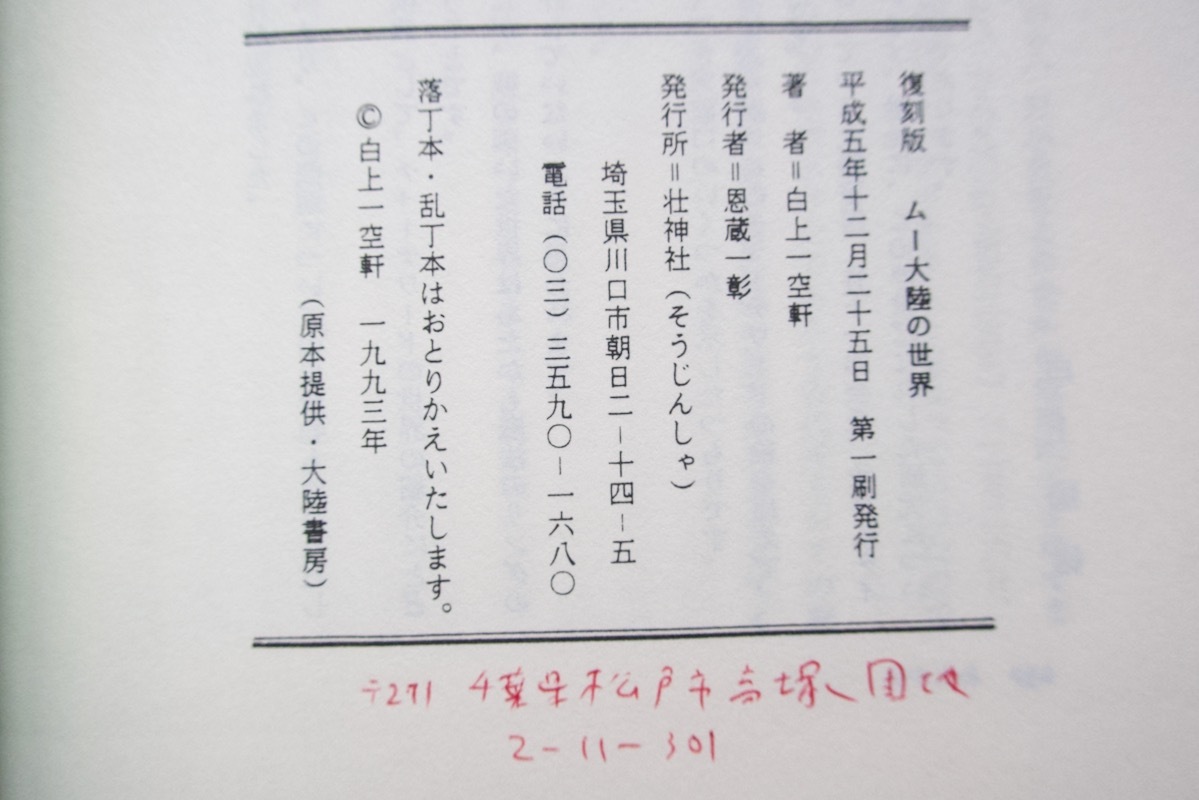 復刻版 ムー大陸の世界
平成五年十二月二十五日 第一刷発行
著 者＝白上一空軒
発行者＝恩蔵一彰
発行所＝壮神社（そうじんしゃ）
埼玉県川口市朝日二－十四－五
電話（〇三）三五九〇－一六八〇
落丁本・乱丁本はおとりかえいたします。
©白上一空軒 一九九三年
（原本提供・大陸書房）
〒271 千葉県松戸市高塚団地
2-11-301